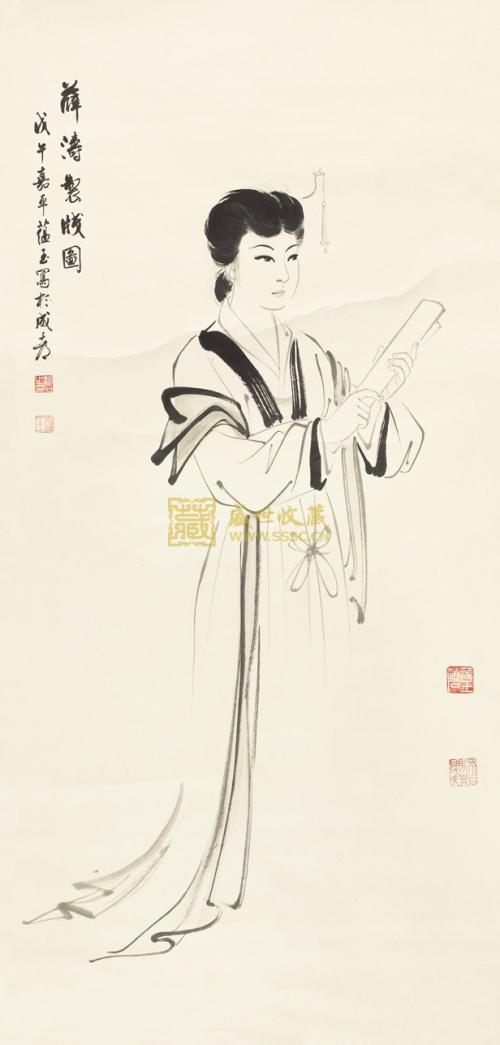 薛濤製牋圖
戊午嘉平蘊玉寫於成都
盛世收藏
WWW.SSSC.CN
藏